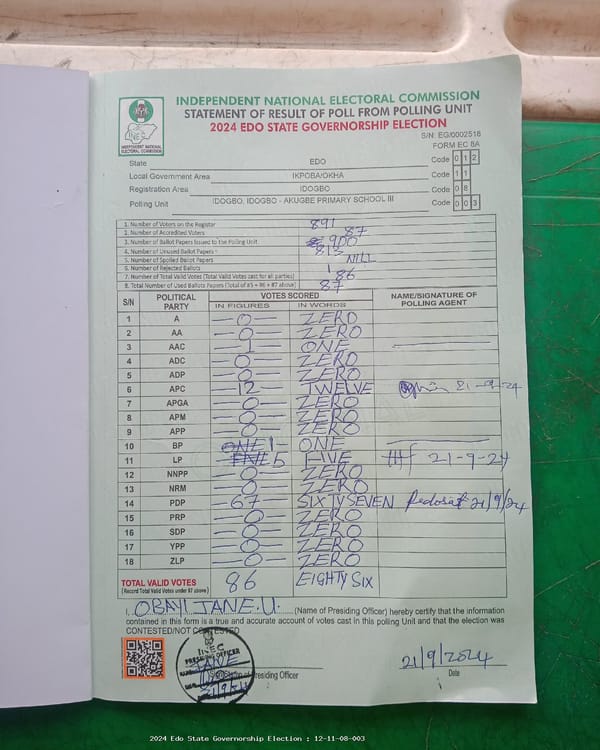 INDEPENDENT NATIONAL ELECTORAL COMMISSION
STATEMENT OF RESULT OF POLL FROM POLLING UNIT
2024 EDO STATE GOVERNORSHIP ELECTION
S/N: EG/0002518
FORM EC 8A
INEC
INDEPENDENT NATIONAL ELECTORAL COMMISSION
State EDO Code 0 1 2
Local Government Area IKPOBA/OKHA Code 1 1
Registration Area IDOGBO Code 0 8
Polling Unit IDOGBO, IDOGBO - AKUGBE PRIMARY SCHOOL III Code 0 0 3
1. Number of Voters on the Register 891
2. Number of Accredited Voters 87
3. Number of Ballot Papers Issued to the Polling Unit 900
4. Number of Unused Ballot Papers 813
5. Number of Spoiled Ballot Papers NILL
6. Number of Rejected Ballots 1
7. Number of Total Valid Votes (Total Valid Votes cast for all parties) 86
8. Total Number of Used Ballots Papers (Total of #5 + #6 + #7 above) 87
S/N POLITICAL PARTY VOTES SCORED NAME/SIGNATURE OF POLLING AGENT
IN FIGURES IN WORDS
1 A -0- ZERO
2 AA -0- ZERO
3 AAC -1- ONE
4 ADC -0- ZERO
5 ADP -0- ZERO
6 APC -12- TWELVE 21-9-24
7 APGA -0- ZERO
8 APM -0- ZERO
9 APP -0- ZERO
10 BP ONE 1- ONE
11 LP FIVE 5 FIVE 21-9-24
12 NNPP -0- ZERO
13 NRM -0- ZERO
14 PDP -67- SIXTY SEVEN 21/9/24
15 PRP -0- ZERO
16 SDP -0- ZERO
17 YPP -0- ZERO
18 ZLP -0- ZERO
TOTAL VALID VOTES 86 EIGHTY SIX
(Record Total Valid Votes under #7 above)
I, OBAYI JANE.U. (Name of Presiding Officer) hereby certify that the information
contained in this form is a true and accurate account of votes cast in this polling Unit and that the election was
CONTESTED/NOT CONTESTED
INEC
PRESIDING OFFICER
JANE
21/9/24
Presiding Officer
21/9/2024
Date
2024 Edo State Governorship Election : 12-11-08-003